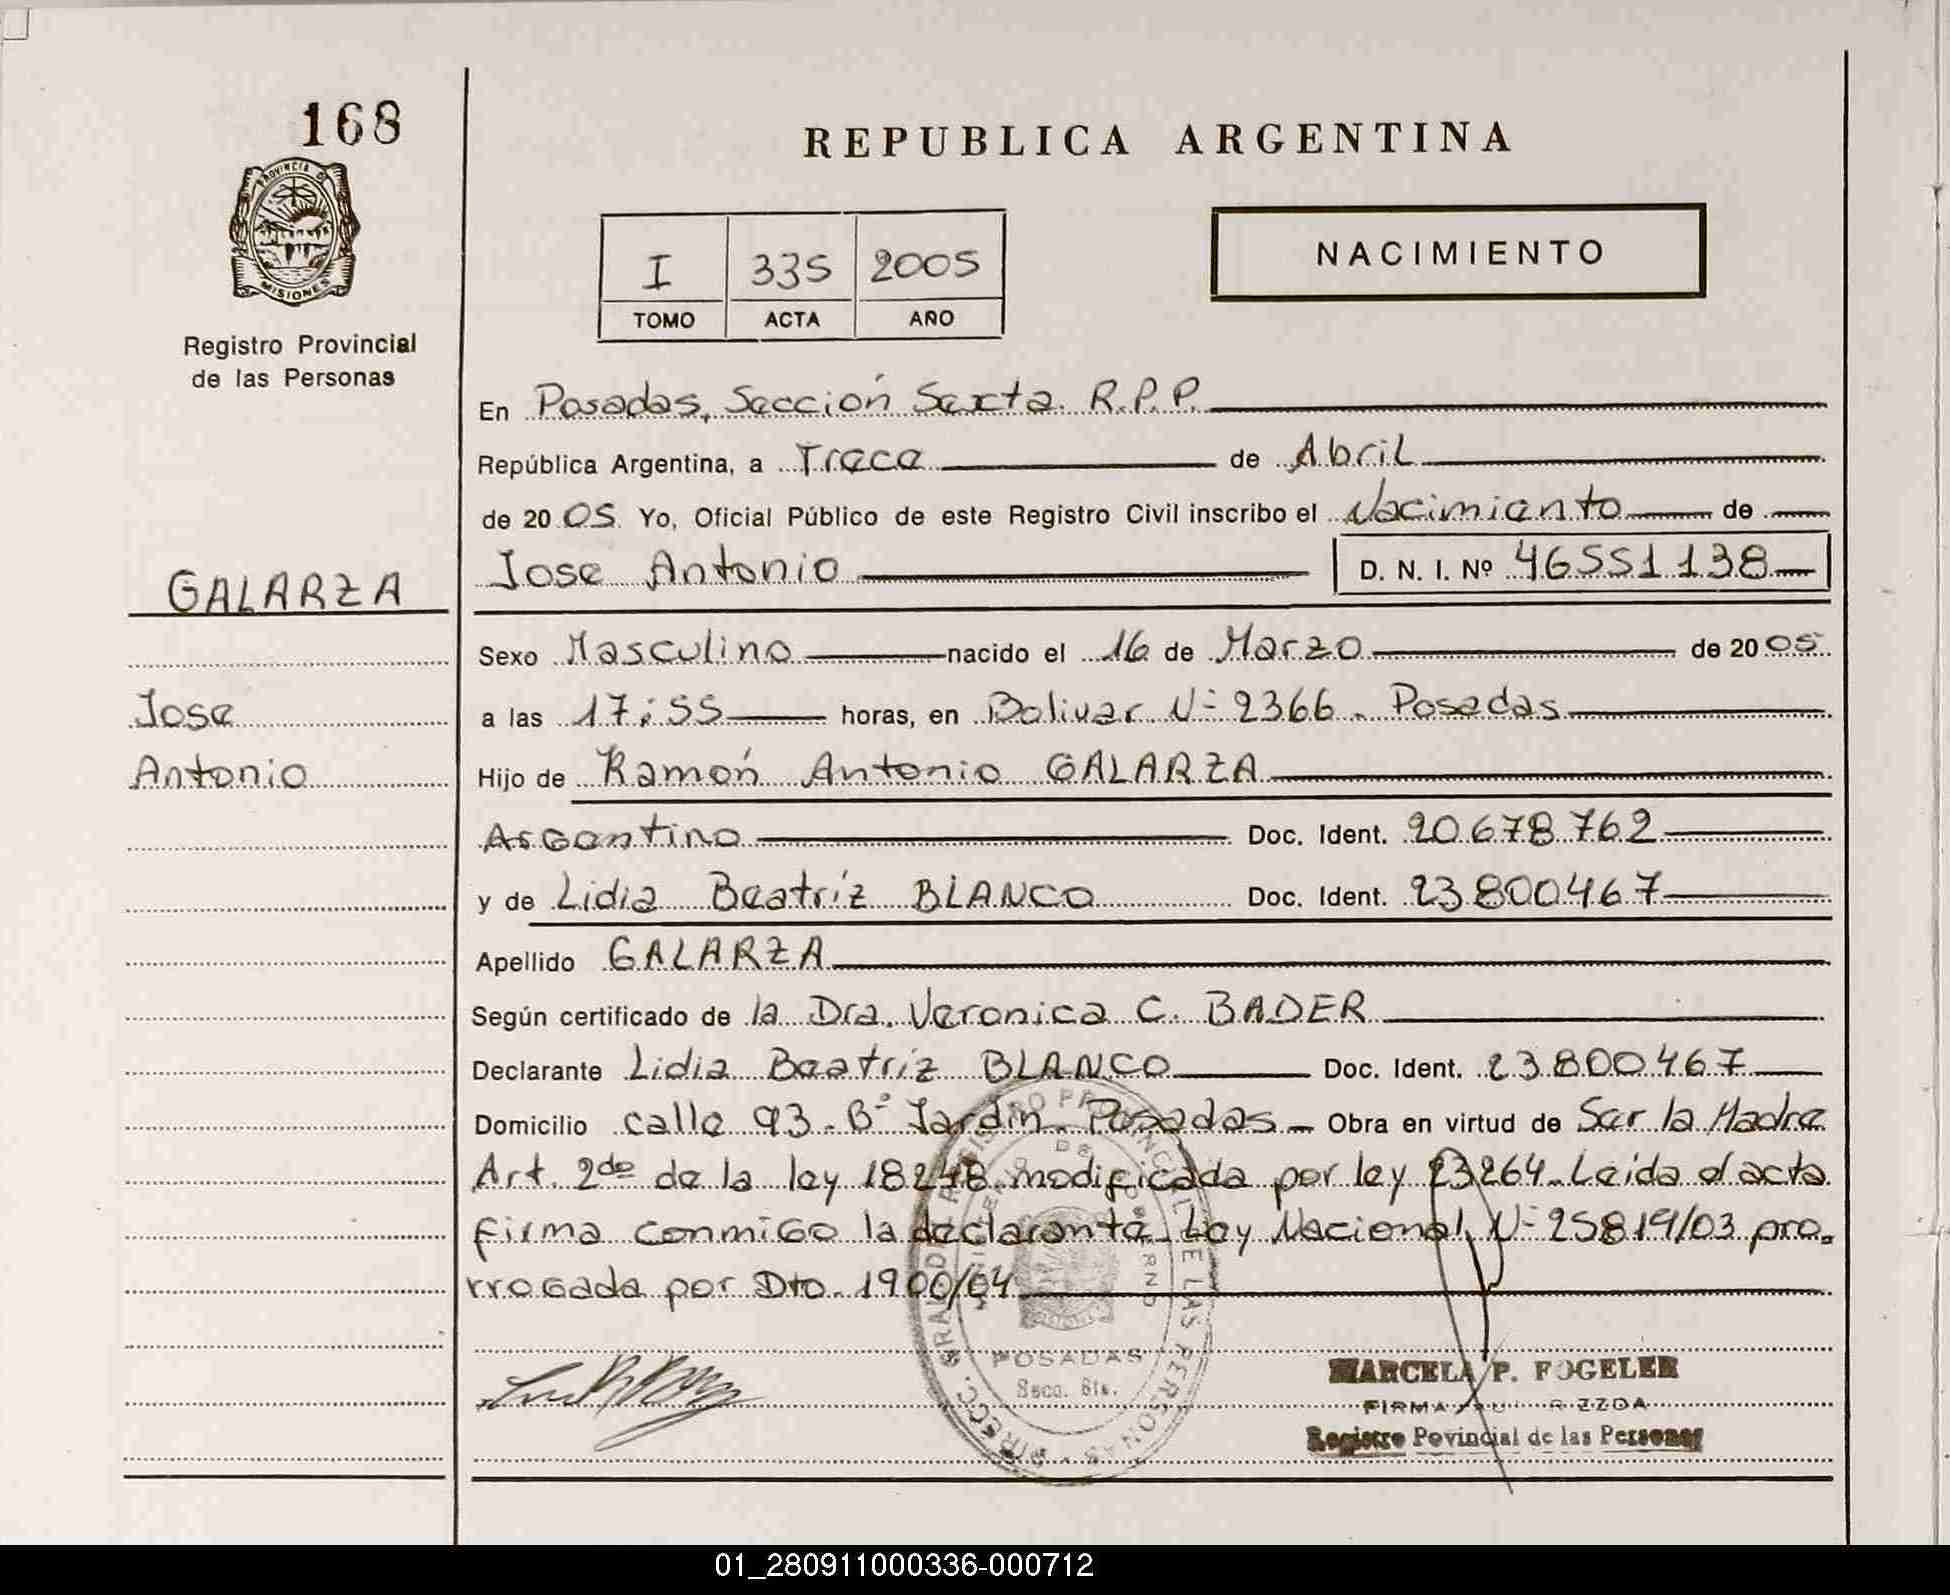 168
REPUBLICA ARGENTINA
PROVINCIA DE
MISIONES
Registro Provincial
de las Personas
I 335 2005
TOMO ACTA AÑO
NACIMIENTO
En Posadas, Sección Sexta R.P.P.
República Argentina, a Trece de Abril
de 2005 Yo, Oficial Público de este Registro Civil inscribo el Nacimiento de
Jose Antonio D. N. I. Nº 46551138
GALARZA
Jose
Antonio
Sexo Masculino nacido el 16 de Marzo de 2005
a las 17:55 horas, en Bolivar Nº 2366. Posadas
Hijo de Ramón Antonio GALARZA
Argentino Doc. Ident. 20.678.762
y de Lidia Beatríz BLANCO Doc. Ident. 23.800.467
Apellido GALARZA
Según certificado de la Dra. Veronica C. BADER
Declarante Lidia Beatríz BLANCO Doc. Ident. 23.800.467
Domicilio calle 93. Bº Jardín. Posadas Obra en virtud de Ser la Madre
Art. 2do de la ley 18248 modificada por ley 23264. Leída el acta
firma conmigo la declarante. Ley Nacional Nº 25819/03 pro.
rrogada por Dto. 1900/04
POSADAS
Secc. 6ta.
MARCELA P. FOGELER
FIRMA
Registro Povincial de las Personas
01_280911000336-000712